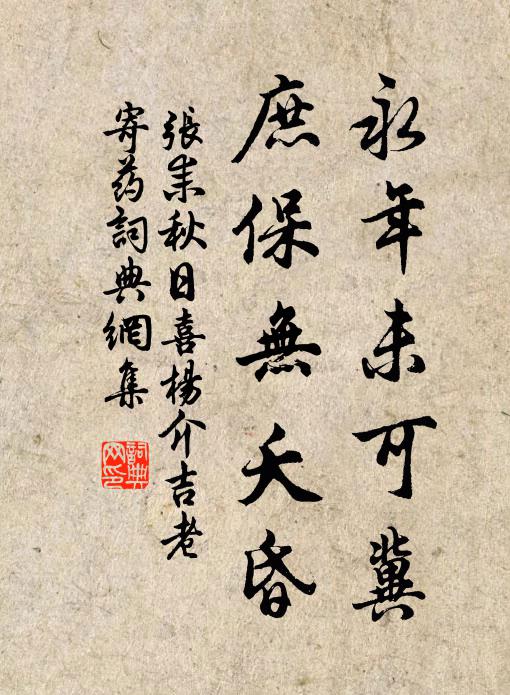 永年未可冀
庶保無夭昏
張耒秋日喜楊介吉老
寄药詞典網集
詞典網印